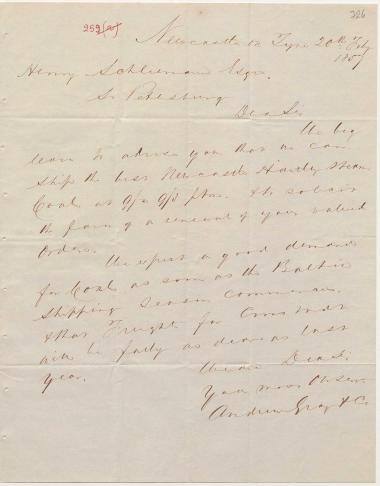 326
252
Newcastle on Tyne 20th Feby
185
Henry Schliemann Esqr.
St Petersburg
Dear Sir
We beg
leave to advise you that we can
ship the best Newcastle Hartley Steam
Coals at 9/ 9/3 pton. & solicit
the favor of a renewal of your valued
Orders.
We expect a good demand
for Coals as soon as the Baltic
Shipping Season commences
& that Freights for Cronstadt
will be fully as dear as last
year.
We are Dear Sir
Your most Obser
Andrew Gray & Co